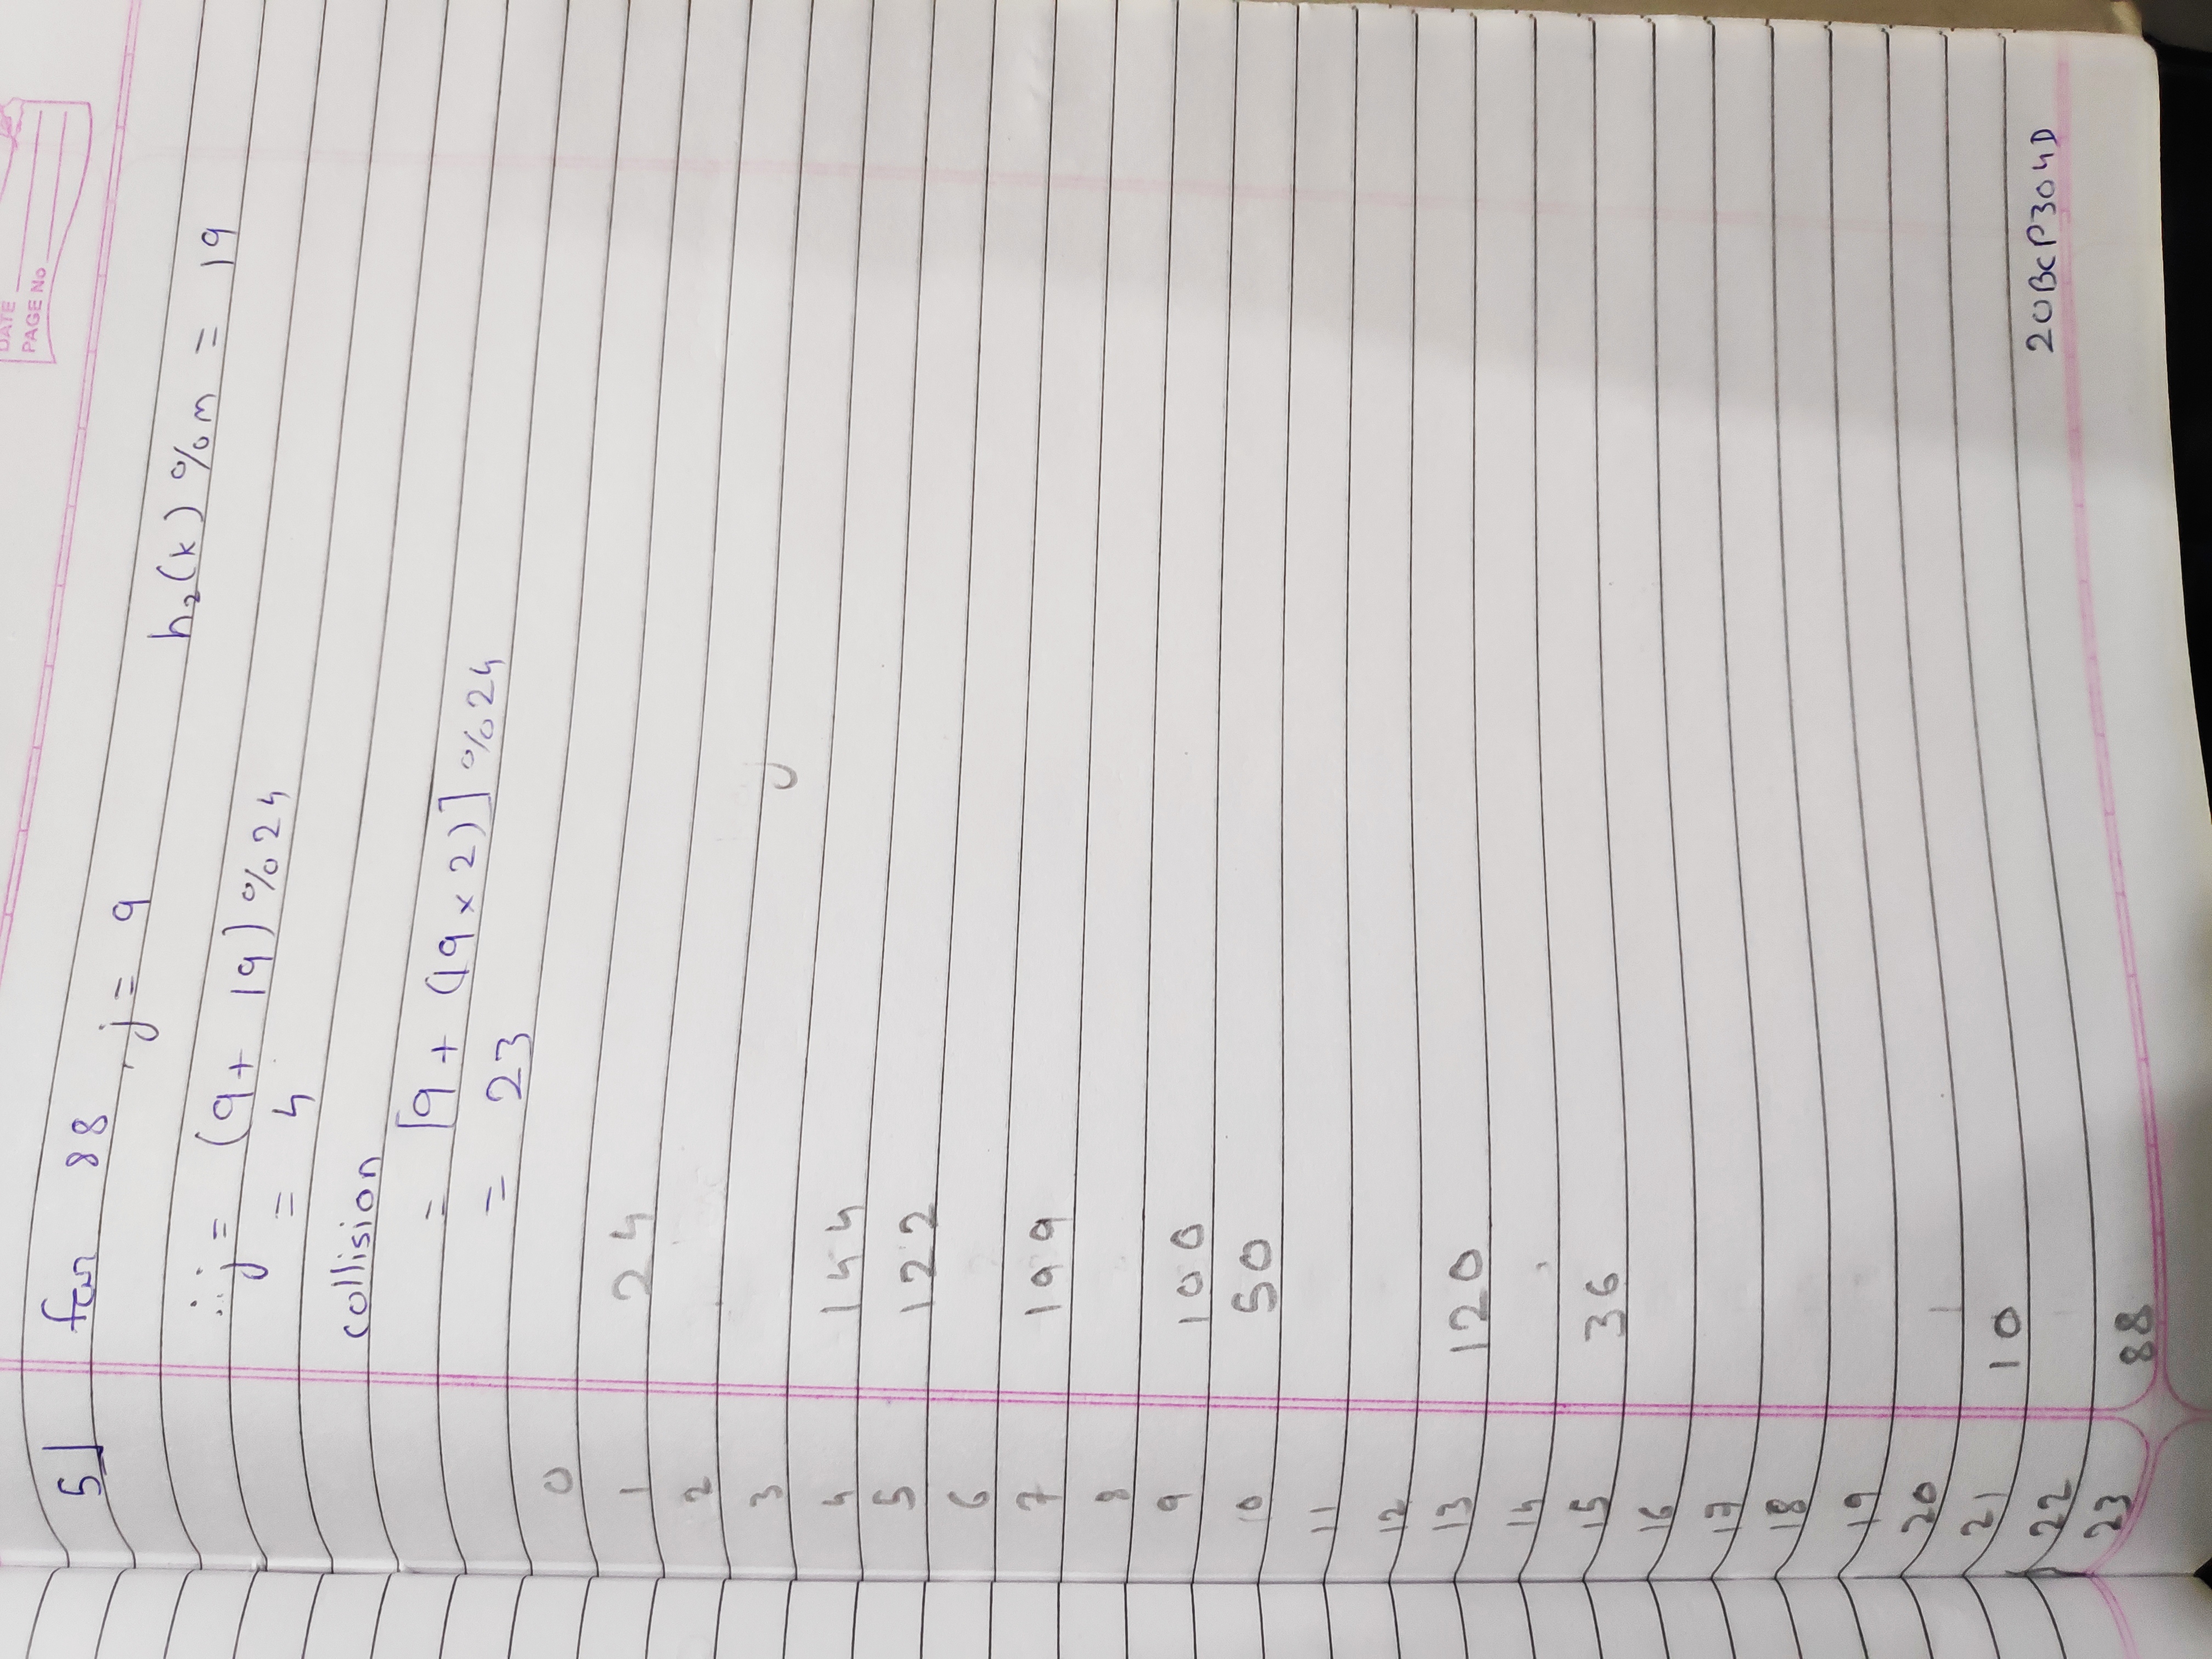 DATE
PAGE No
5] for 88, j = 9 h₂(k) % m = 19
∴ j = (9 + 19) % 24
= 4
collision
= [9 + (19 × 2)] % 24
= 23
0
1 24
2
3
4 144
5 122
6
7 199
8
9 100
10 50
11
12
13 120
14
15 36
16
17
18
19
20
21 10
22
23 88
20BCP304D